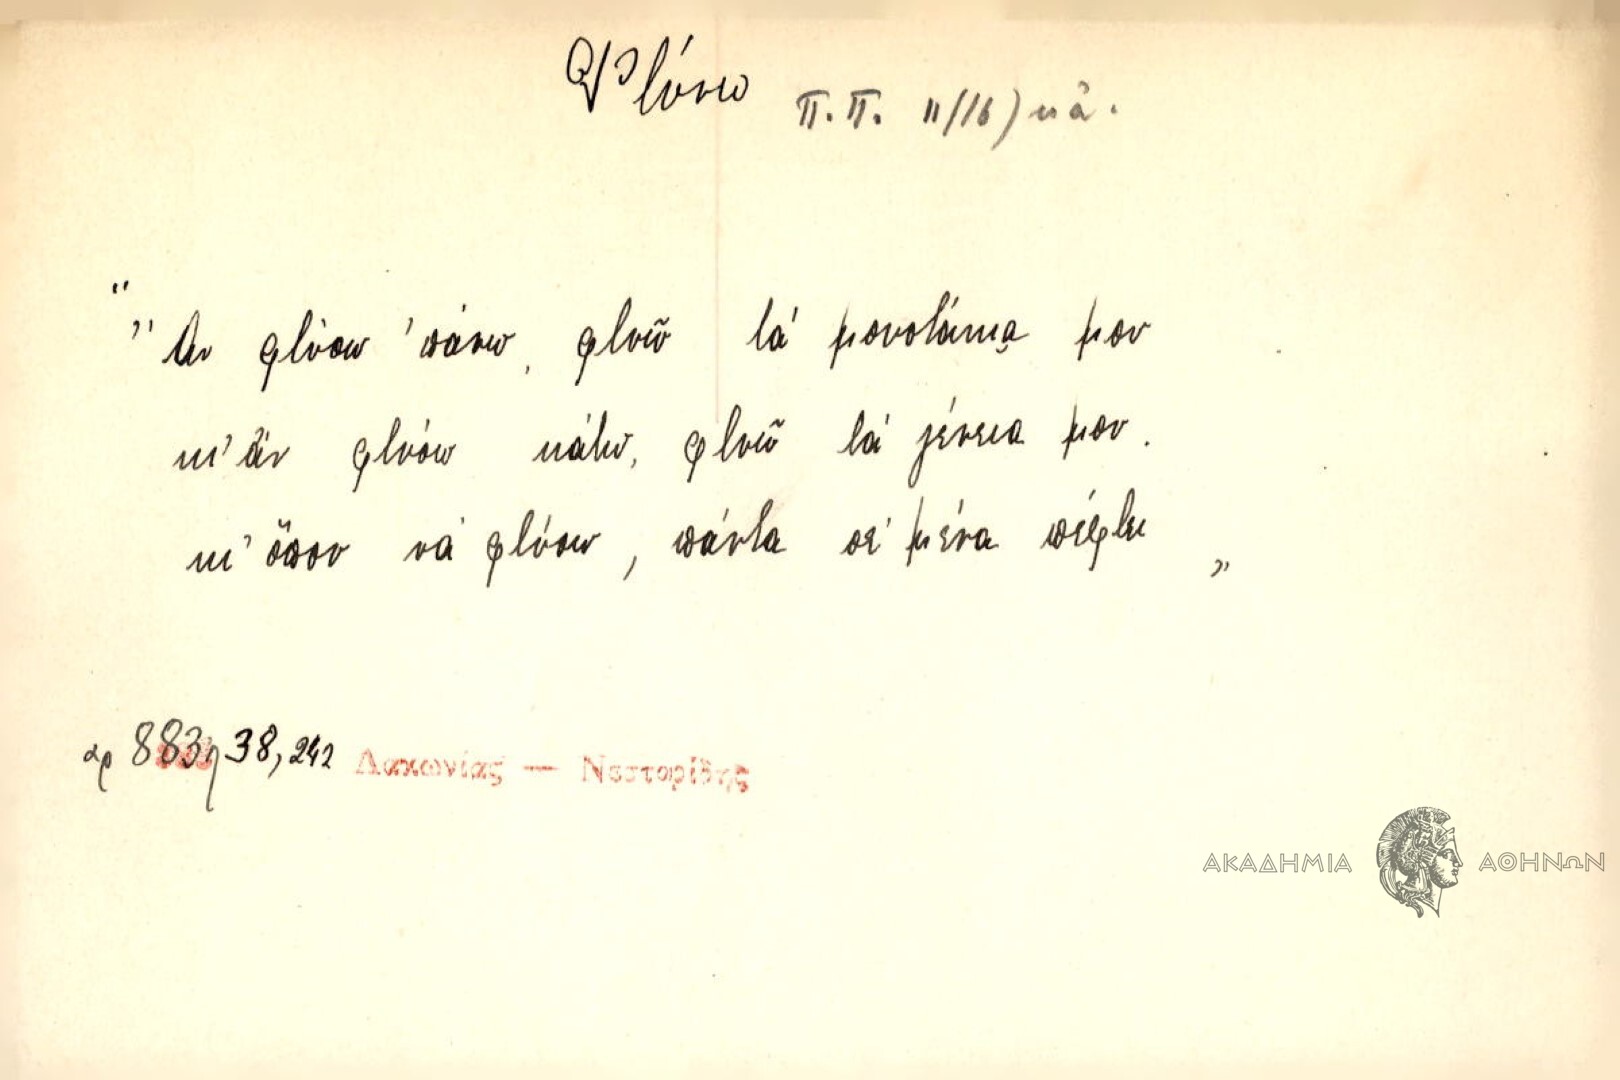 Φτύνω Π.Π. 11/16) κἀ.
"Ἂν φτύσω 'πάνω, φτυῶ τά μουστάκια μου
κι' ἄν φτύσω κάτω, φτυῶ τά γένεια μου.
κι' ὅπου νά φτύσω, πάντα σέ μένα πέφτει "
αρ 883, 38, 242 Λακωνίας — Νεστορίδης
ΑΚΑΔΗΜΙΑ ΑΘΗΝΩΝ